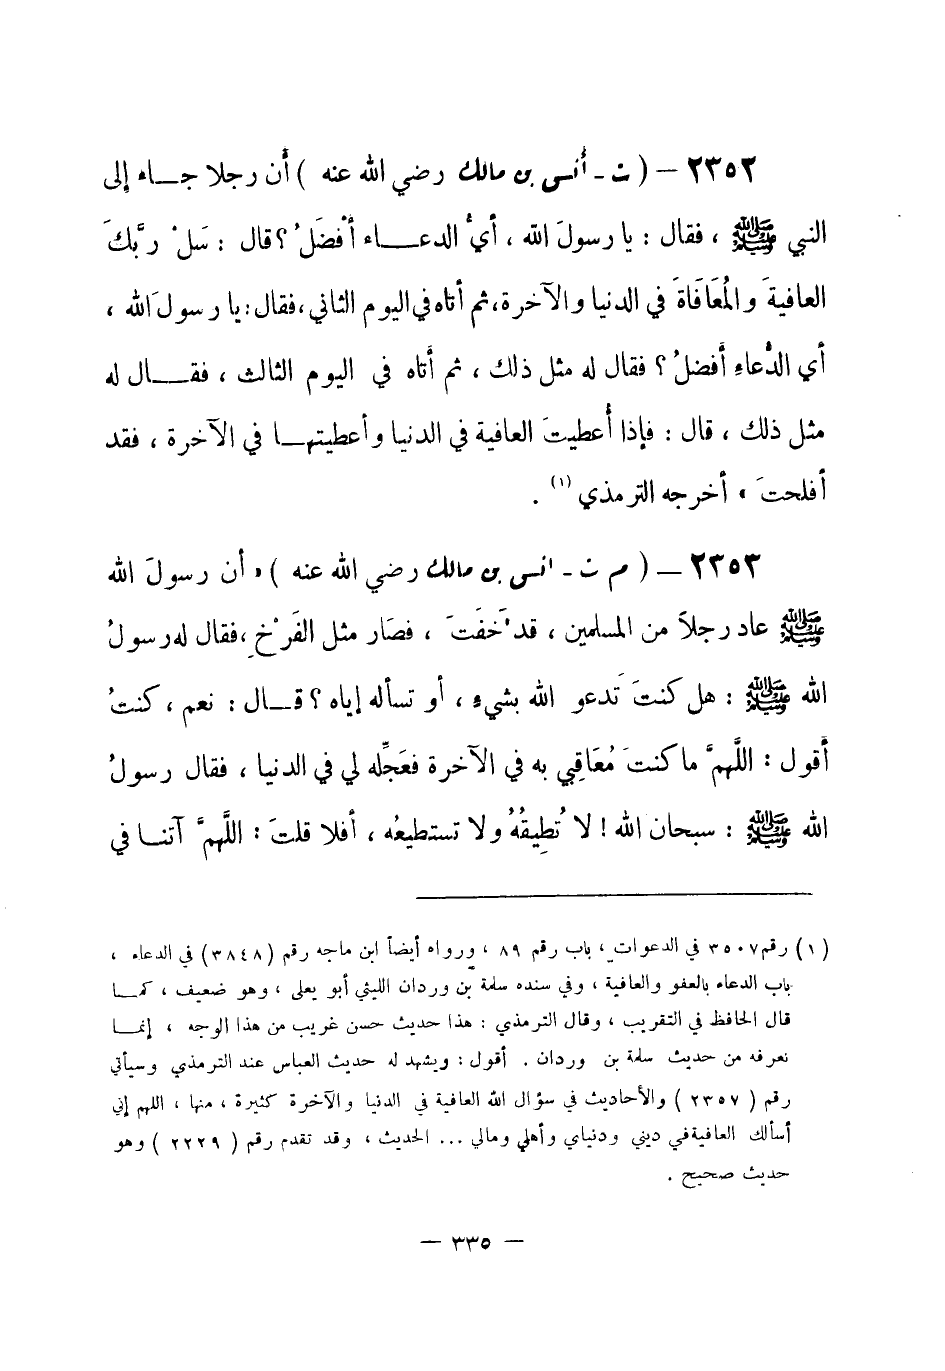 ٢٣٥٢ – ( ت - أنس بن مالك رضي الله عنه ) أن رجلا جاء إلى
النبي ﷺ ، فقال : يا رسولَ الله ، أيُّ الدعاء أفْضَلُ ؟ قال : سَلْ ربَّكَ
العافيةَ والمُعَافَاةَ في الدنيا والآخرة، ثم أتاه في اليوم الثاني ، فقال : يا رسولَ الله ،
أي الدُّعاءِ أفضلُ ؟ فقال له مثل ذلك ، ثم أتاه في اليوم الثالث ، فقال له
مثل ذلك ، قال : فإذا أُعطيتَ العافية في الدنيا وأعطيتها في الآخرة ، فقد
أفلحتَ » أخرجه الترمذي (١) .
٢٣٥٣ – ( م ت - انس بن مالك رضي الله عنه ) « أن رسولَ الله
ﷺ عاد رجلاً من المسلمين ، قد خَفَتَ ، فصَار مثل الفَرْخِ ، فقال له رسولُ
الله ﷺ : هل كنتَ تَدعو الله بشيء ، أو تسأله إياه ؟ قال : نعم ، كنتُ
أقول : اللَّهمَّ ما كنتَ مُعَاقِبي به في الآخرة فعَجِّله لي في الدنيا ، فقال رسولُ
الله ﷺ : سبحان الله ! لا تُطِيقُهُ ولا تستطيعُه ، أفلا قلتَ : اللَّهمَّ آتنا في
(١) رقم ٣٥٠٧ في الدعوات ، باب رقم ٨٩ ، ورواه أيضاً ابن ماجه رقم (٣٨٤٨) في الدعاء ،
باب الدعاء بالعفو والعافية ، وفي سنده سلمة بن وردان الليثي أبو يعلى ، وهو ضعيف ، كما
قال الحافظ في التقريب ، وقال الترمذي : هذا حديث حسن غريب من هذا الوجه ، إنما
نعرفه من حديث سلمة بن وردان . أقول : ويشهد له حديث العباس عند الترمذي وسيأتي
رقم ( ٢٣٥٧ ) والأحاديث في سؤال الله العافية في الدنيا والآخرة كثيرة ، منها ، اللهم إني
أسألك العافية في ديني ودنياي وأهلي ومالي ... الحديث ، وقد تقدم رقم ( ٢٢٢٩ ) وهو
حديث صحيح .
– ٣٣٥ –